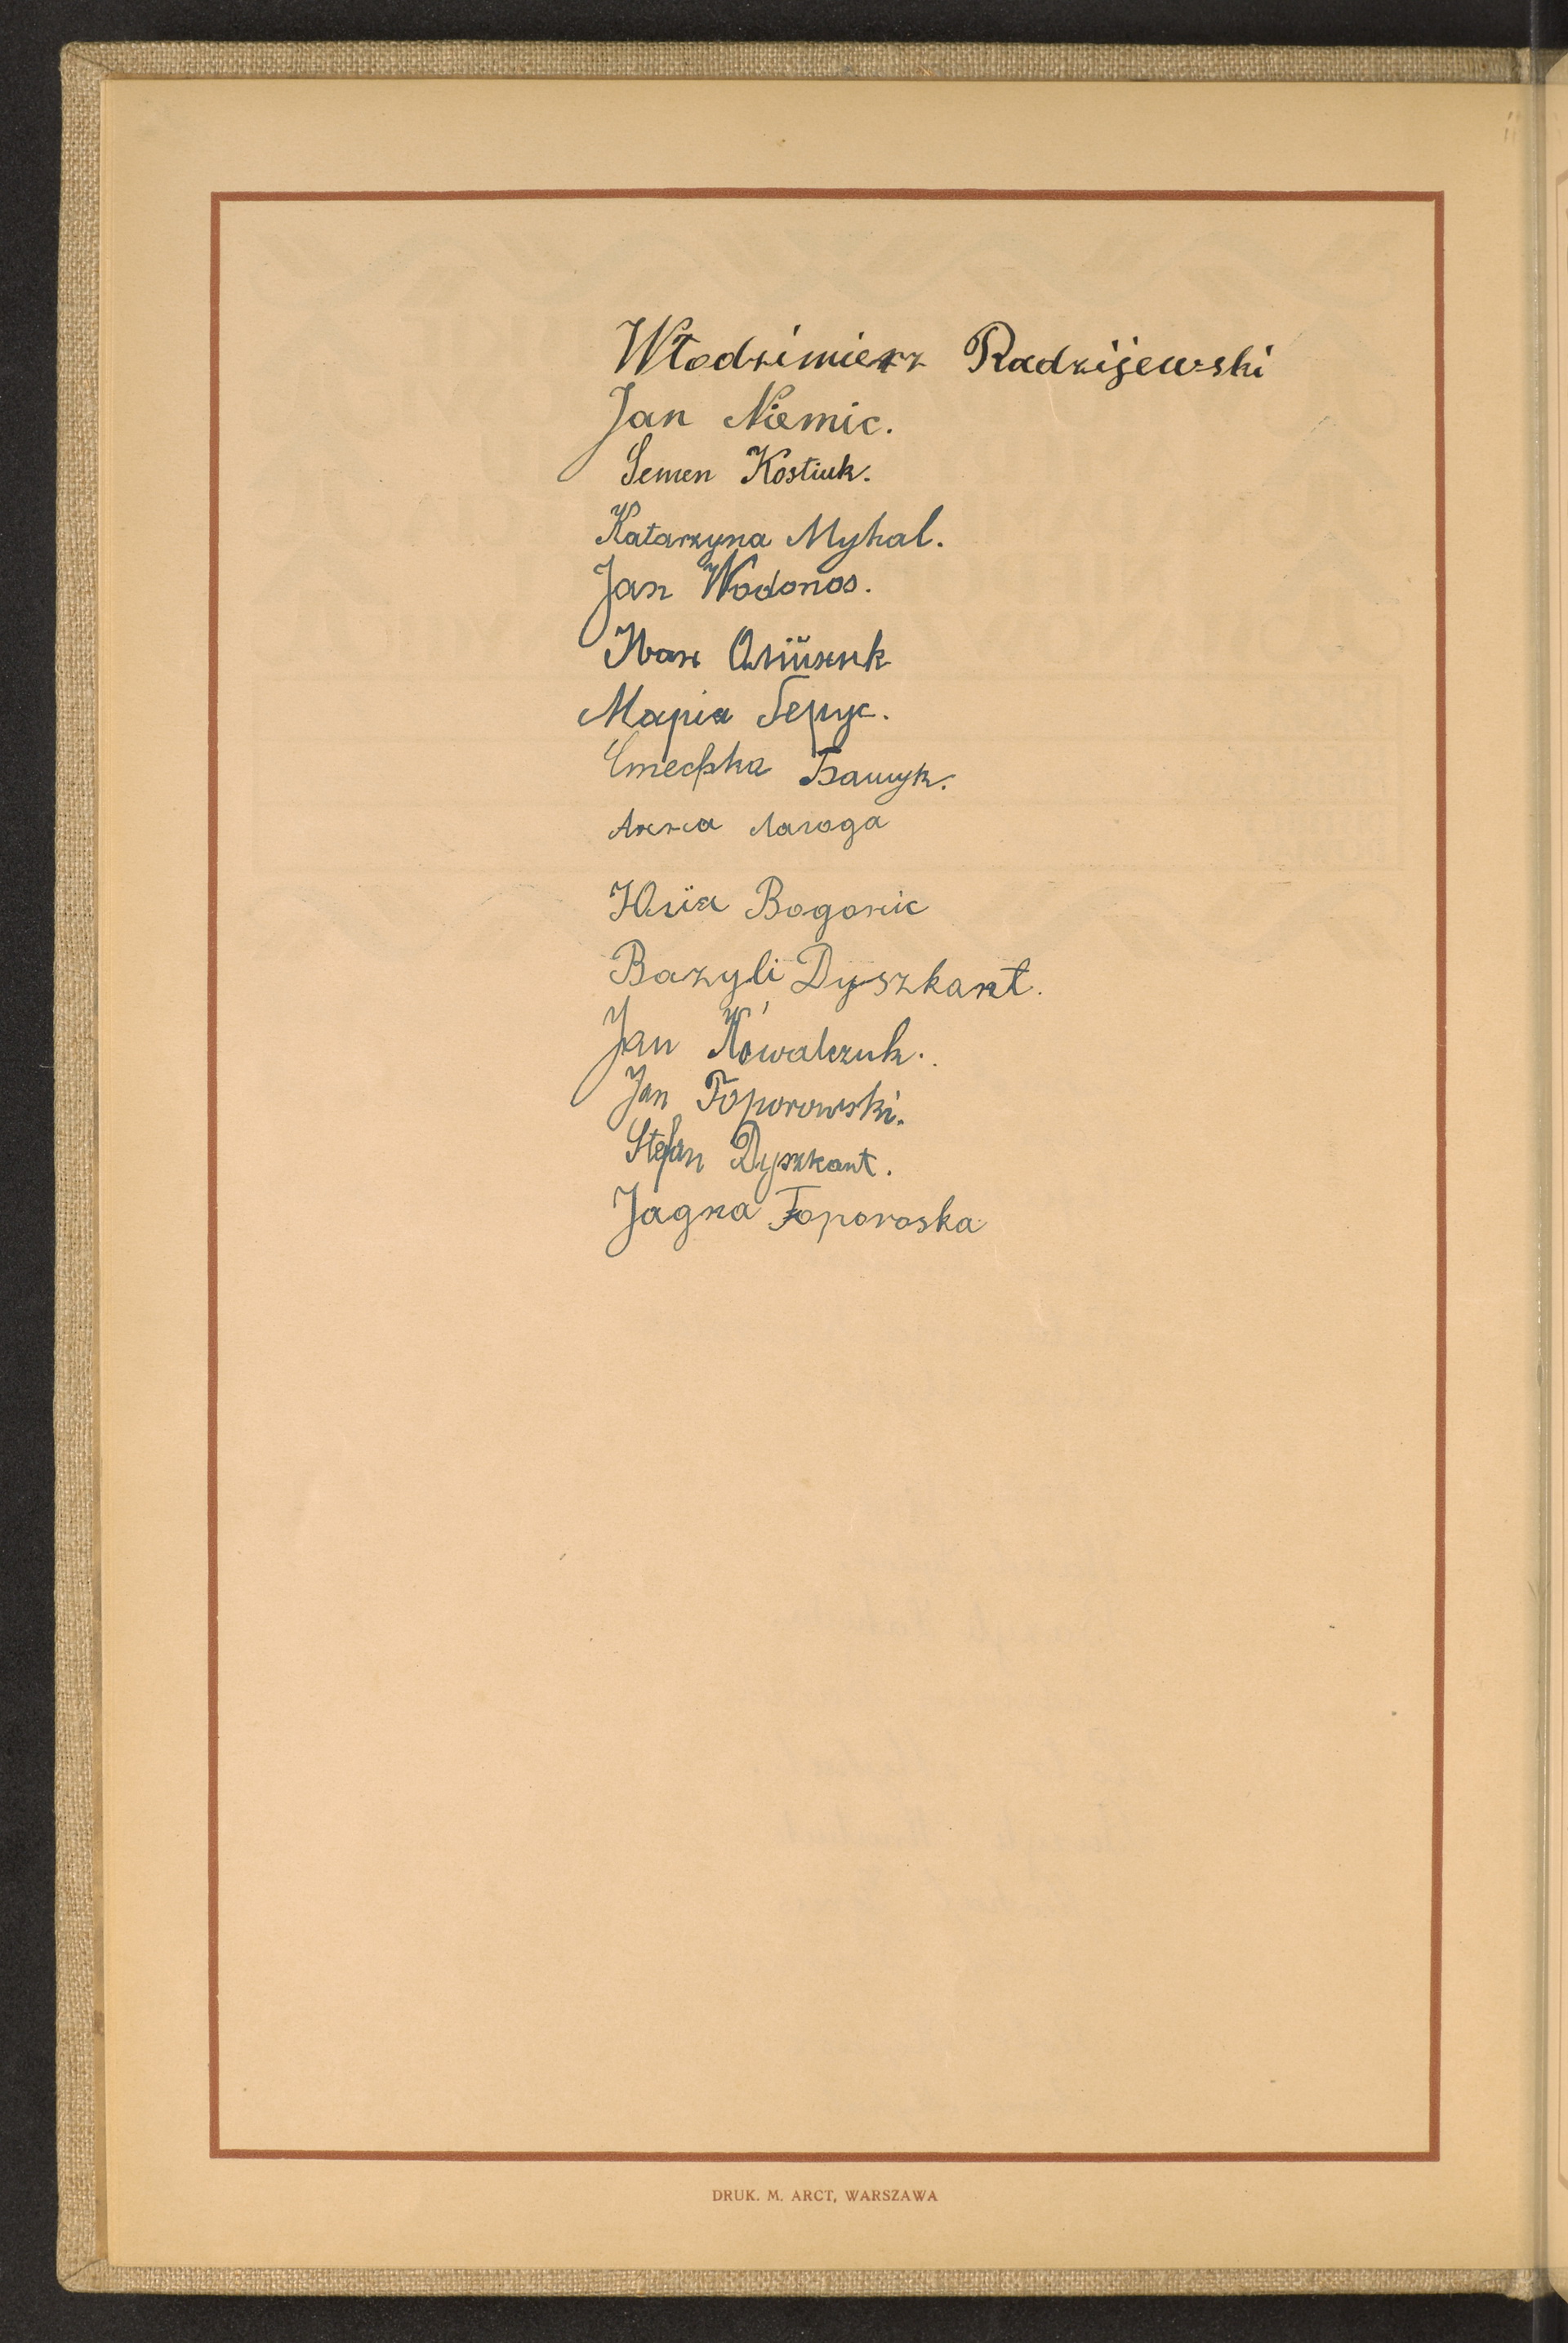 Włodzimierz Radzijewski
Jan Niemic.
Semen Kostiuk.
Katarzyna Myhal.
Jan Wodonos.
Іван
Марія Герус.
Стефка Бащук.
Анна Лагода
Юлія Водонic
Bazyli Dyszkant.
Jan Kowalczuk.
Jan Toporowski.
Stefan Dyszkant.
Jagna Toporoska
DRUK. M. ARCT, WARSZAWA